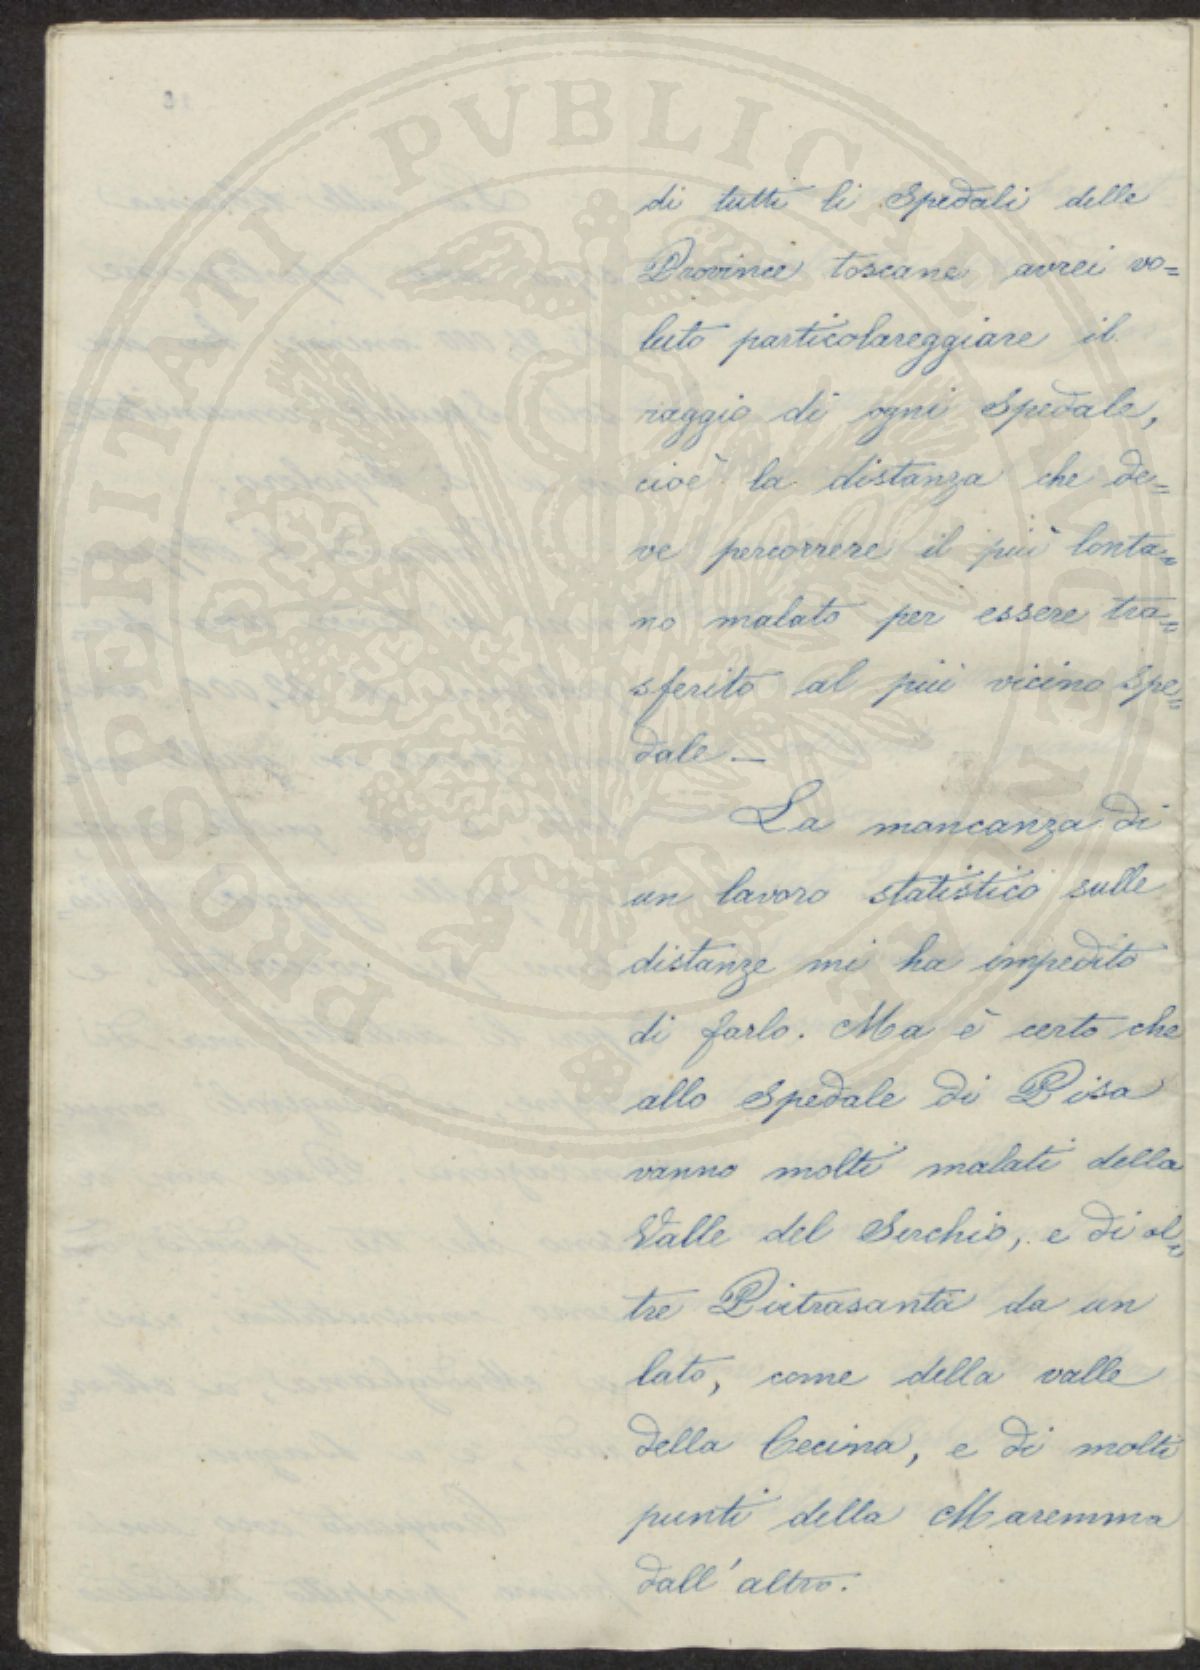 PROSPERITATI PVBLICAE AVGENDAE
di tutti li Spedali delle
Province toscane avrei vo=
luto particolareggiare il
raggio di ogni Spedale,
cioè la distanza che de=
ve percorrere il più lonta=
no malato per essere tra=
sferito al più vicino Spe=
dale —
La mancanza di
un lavoro statistico sulle
distanze mi ha impedito
di farlo. Ma è certo che
allo Spedale di Pisa
vanno molti malati della
Valle del Serchio, e di ol=
tre Pietrasanta da un
lato, come della valle
della Cecina, e di molti
punti della Maremma
dall'altro.